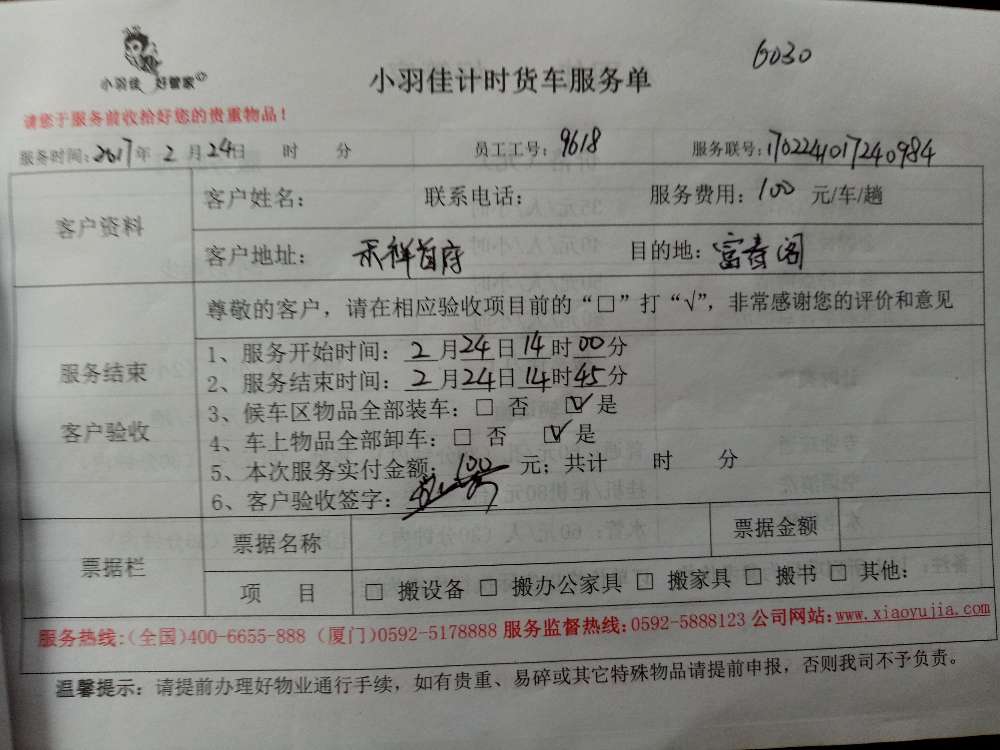 小羽佳 好管家
小羽佳计时货车服务单
6030
请您于服务前收拾好您的贵重物品！
服务时间：2017年 2 月 24日 时 分 员工工号：9618 服务联号：170224017240984
客户资料
客户姓名： 联系电话： 服务费用：100 元/车/趟
客户地址：禾祥首府 目的地：富寿阁
尊敬的客户，请在相应验收项目前的“□”打“√”，非常感谢您的评价和意见
服务结束
客户验收
1、服务开始时间：2月24日14时00分
2、服务结束时间：2月24日14时45分
3、候车区物品全部装车：□ 否 ☑ 是
4、车上物品全部卸车：□ 否 ☑ 是
5、本次服务实付金额：100 元；共计 时 分
6、客户验收签字：
票据栏
票据名称 票据金额
项 目 □ 搬设备 □ 搬办公家具 □ 搬家具 □ 搬书 □ 其他：
服务热线:(全国)400-6655-888（厦门)0592-5178888 服务监督热线:0592-5888123 公司网站:www.xiaoyujia.com
温馨提示：请提前办理好物业通行手续，如有贵重、易碎或其它特殊物品请提前申报，否则我司不予负责。